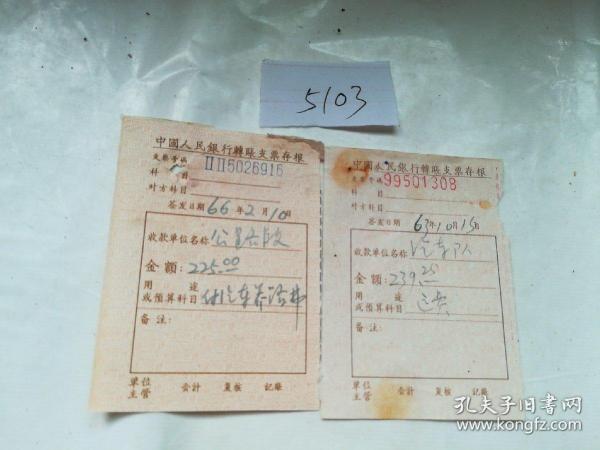 5103
中國人民銀行轉賬支票存根
支票号碼 II II5026916
科目
对方科目
签发日期 66年2月10日
收款单位名称
金額: 225.00
用途
或預算科目 付汽车养路费
备注:
单位
主管 会計 复核 記賬
中國人民銀行轉賬支票存根
支票号碼 99501308
科目
对方科目
签发日期 63年10月15日
收款单位名称 汽车队
金額: 239.25
用途
或預算科目 运费
备注:
单位
主管 会計 复核 記賬
孔夫子旧书网
www.kongfz.com